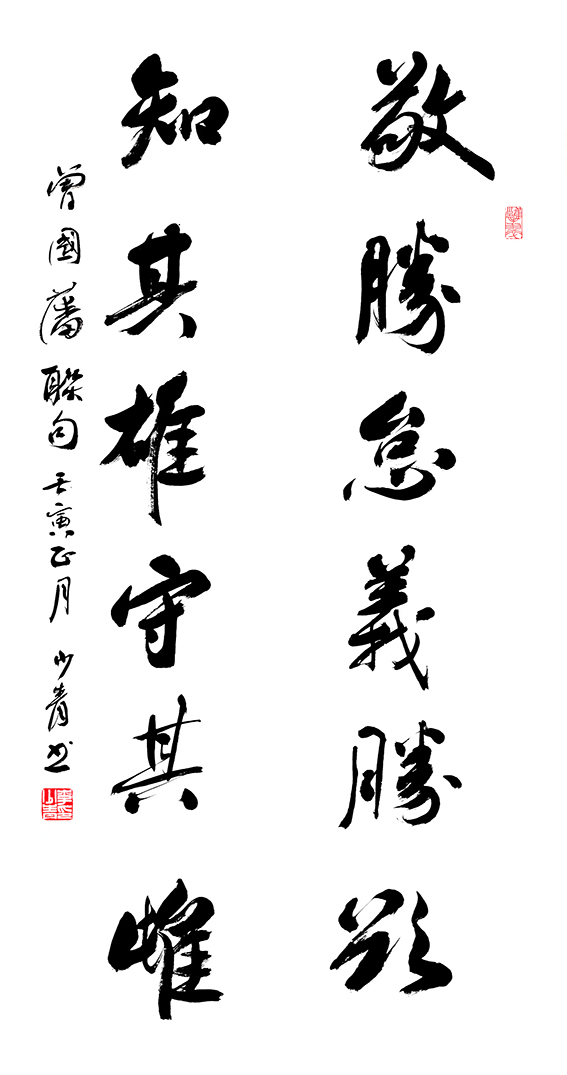 敬勝怠義勝欲
知其雄守其雌
曾國藩聯句 壬寅正月 少青书